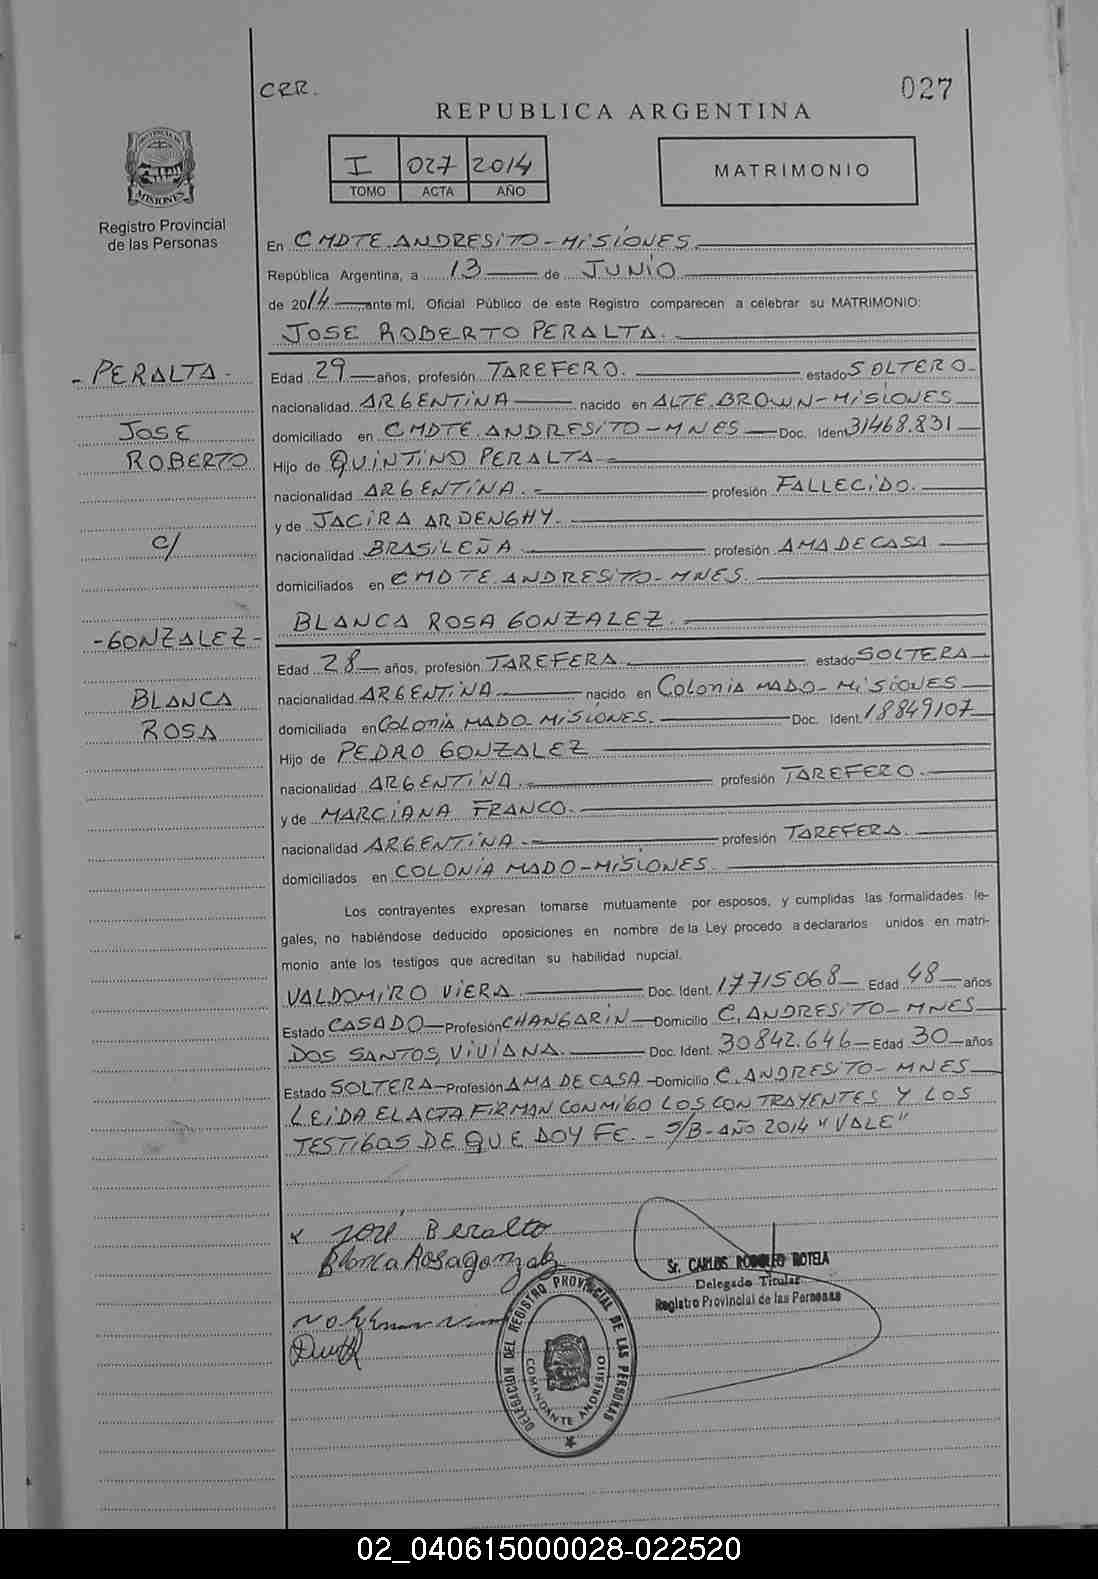 CRR.
027
REPUBLICA ARGENTINA
I 027 2014
TOMO ACTA AÑO
MATRIMONIO
PROVINCIA DE
MISIONES
Registro Provincial
de las Personas
En CMDTE. ANDRESITO - MISIONES.
República Argentina, a 13 de JUNIO
de 2014 ante mí, Oficial Público de este Registro comparecen a celebrar su MATRIMONIO:
JOSE ROBERTO PERALTA.
- PERALTA -
JOSE
ROBERTO
c/
- GONZALEZ -
BLANCA
ROSA
Edad 29 años, profesión TAREFERO. estado SOLTERO-
nacionalidad ARGENTINA nacido en ALTE. BROWN - MISIONES
domiciliado en CMDTE. ANDRESITO - MNES Doc. Ident 31468.831
Hijo de QUINTINO PERALTA -
nacionalidad ARGENTINA. - profesión FALLECIDO.
y de JACIRA ARDENGHY.
nacionalidad BRASILEÑA profesión AMA DE CASA
domiciliados en CMDTE. ANDRESITO - MNES.
BLANCA ROSA GONZALEZ. -
Edad 28 años, profesión TAREFERA. estado SOLTERA
nacionalidad ARGENTINA nacido en COLONIA MADO - MISIONES
domiciliada en COLONIA MADO - MISIONES. Doc. Ident. 18849107
Hijo de PEDRO GONZALEZ
nacionalidad ARGENTINA. - profesión TAREFERO.
y de MARCIANA FRANCO.
nacionalidad ARGENTINA. - profesión TAREFERA.
domiciliados en COLONIA MADO - MISIONES.
Los contrayentes expresan tomarse mutuamente por esposos, y cumplidas las formalidades le-
gales, no habiéndose deducido oposiciones en nombre de la Ley procedo a declararlos unidos en matri-
monio ante los testigos que acreditan su habilidad nupcial.
VALDOMIRO VIERA. Doc. Ident. 17715068 Edad 48 años
Estado CASADO Profesión CHANGARIN Domicilio C. ANDRESITO - MNES
DOS SANTOS, VIVIANA. Doc. Ident. 30842.646 Edad 30 años
Estado SOLTERA Profesión AMA DE CASA Domicilio C. ANDRESITO - MNES
LEIDA EL ACTA FIRMAN CONMIGO LOS CONTRAYENTES Y LOS
TESTIGOS DE QUE DOY FE. - S/B - AÑO 2014 "VALE"
x José Beralto
Blanca Rosa gonzalez
Sr. CARLOS RODOLFO ROTELA
Delegado Titular
Registro Provincial de las Personas
DELEGACION DEL REGISTRO PROVINCIAL DE LAS PERSONAS
COMANDANTE ANDRESITO
02_040615000028-022520